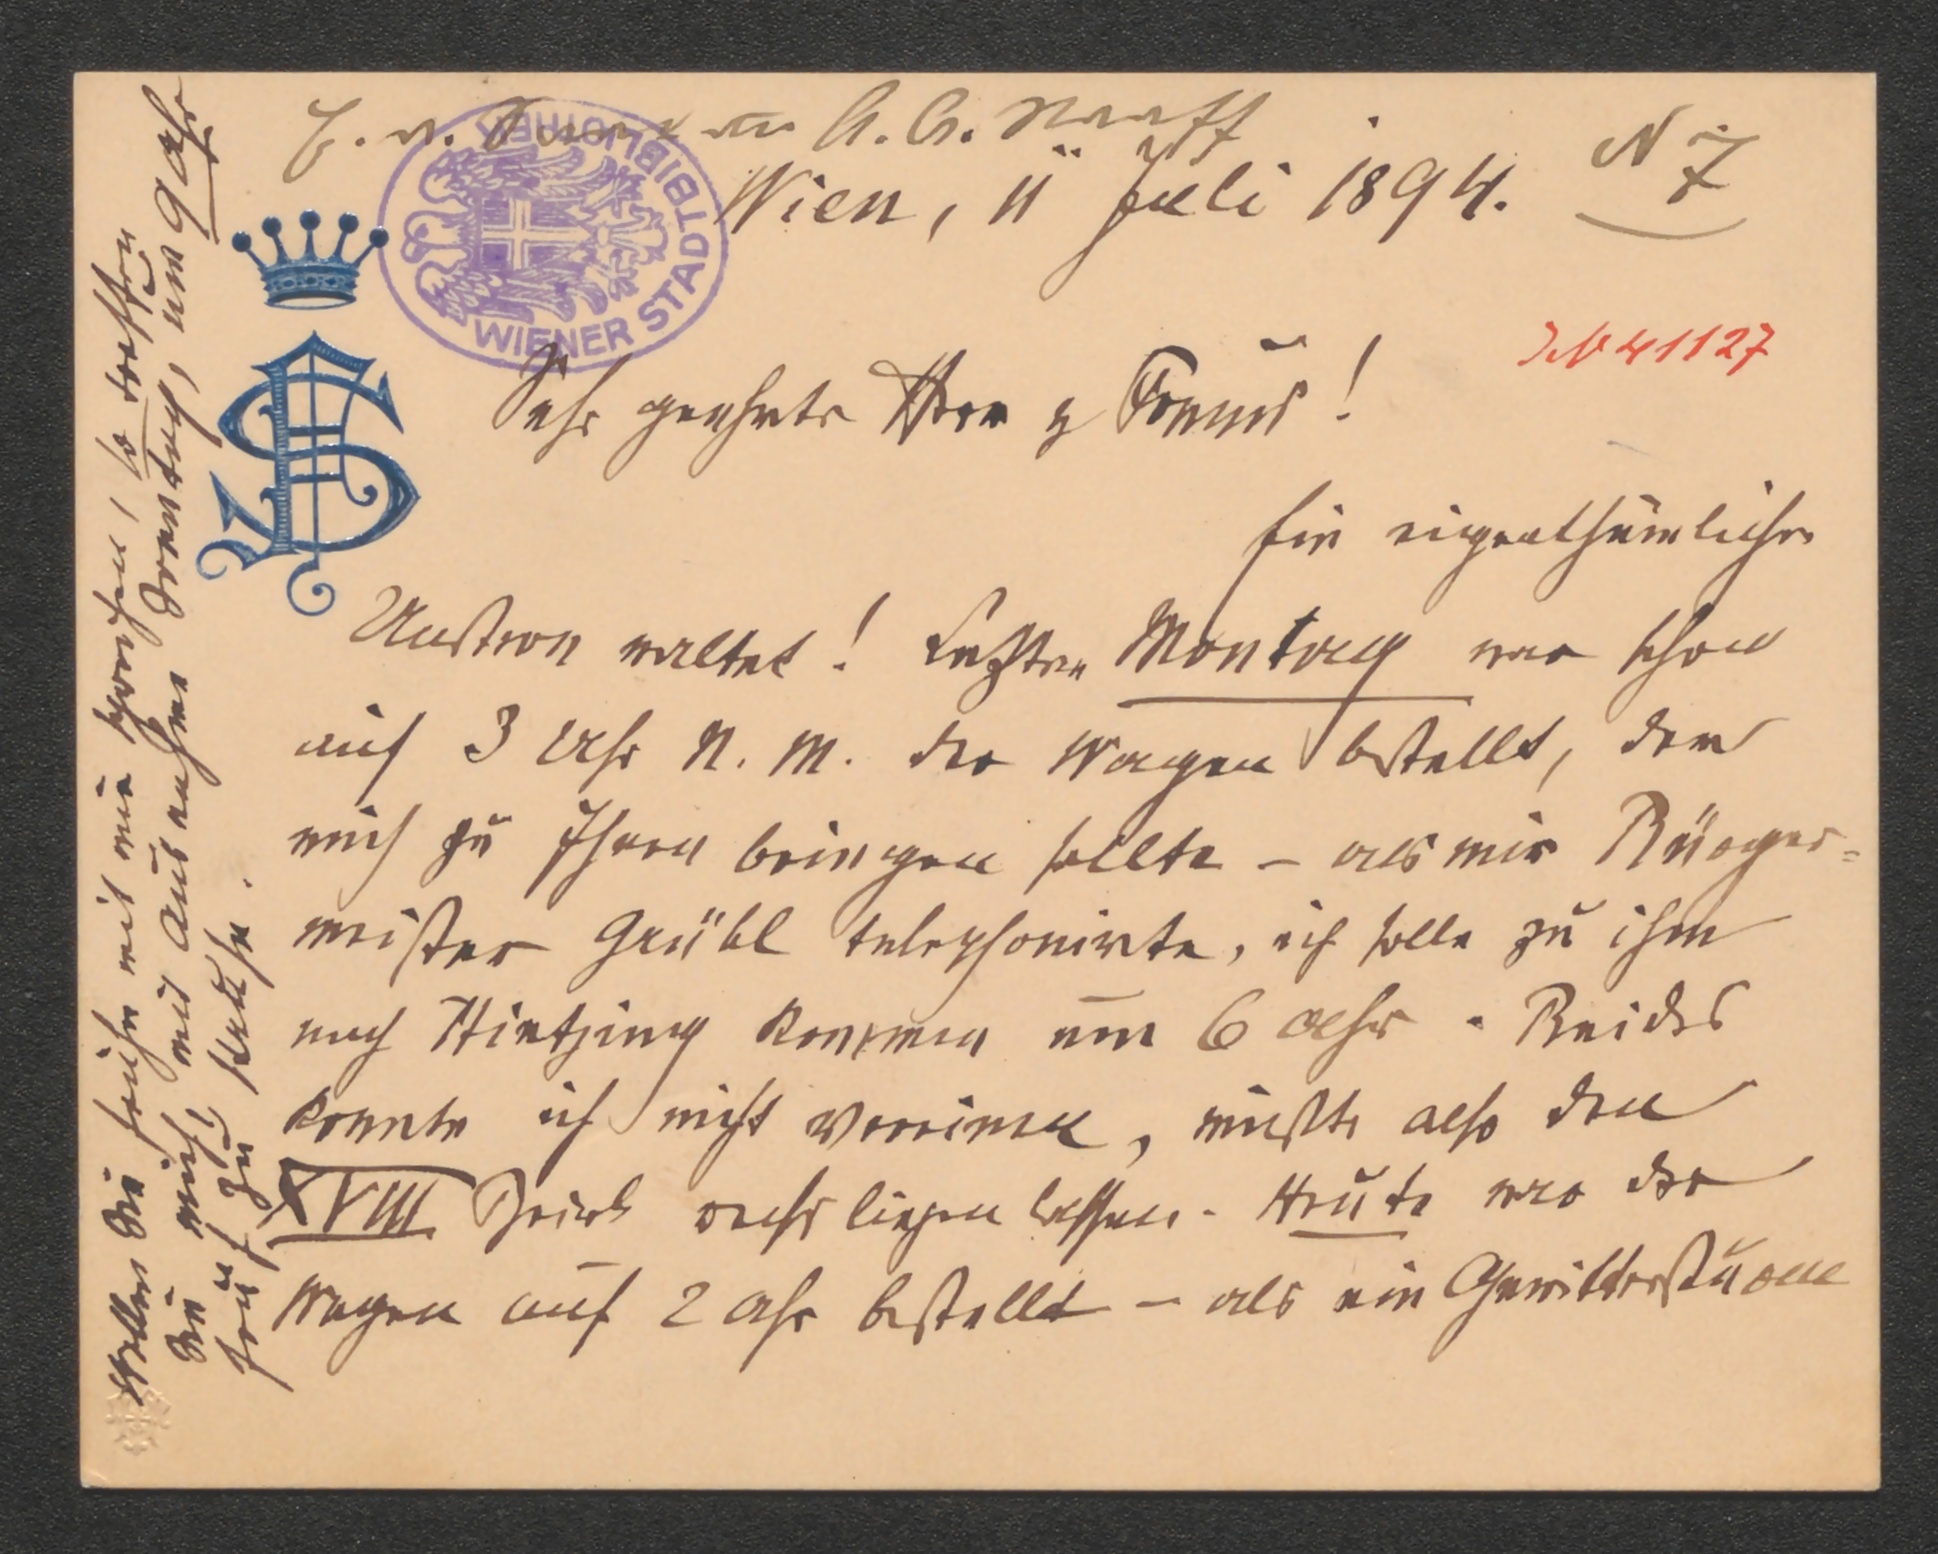 an A. A. Naaff
N 7
Wien, 11 Juli 1894.
WIENER STADTBIBLIOTHEK
41127
Sehr geehrter Herr u Freund!
Ein eigenthümlicher
Unstern waltet! Letzten Montag war schon
auf 3 Uhr N. M. der Wagen bestellt, der
mich zu Ihnen bringen sollte – als mir Bürger-
meister Grübl telephonirte, ich solle zu ihm
nach Hietzing kommen um 6 Uhr. Beides
konnte ich nicht vereinen, mußte also den
XVIII Bezirk rechts liegen lassen. Heute war der
Wagen auf 2 Uhr bestellt – als ein Gewittersturm
Wollen Sie früher mit mir sprechen, so treffen
Sie mich, mit Ausnahme Sonntag, um 9 Uhr
früh zu Hause.